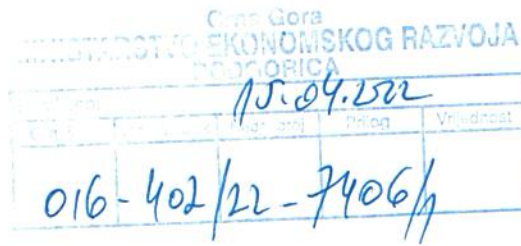 Crna Gora
MINISTARSTVO EKONOMSKOG RAZVOJA
PODGORICA
15.04.2022
Prilog Vrijednost
016-402/22-7406/1